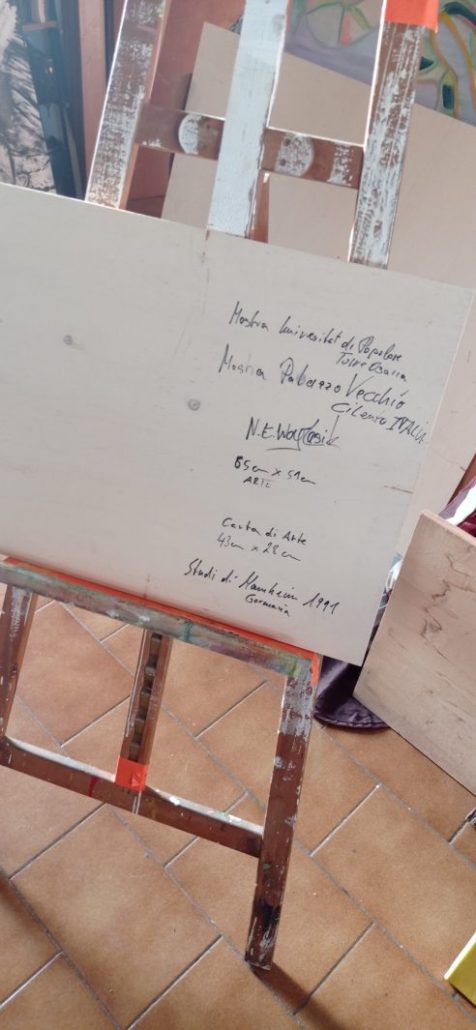 Mostra Universitat di Popolare
Torre Orsaia
Mostra Palazzo Vecchio
Cilento ITALIA
N.E.
65cm x 51cm
ARTE
Carta di Arte
43cm x 28cm
Studi di Manheim 1991
Germania